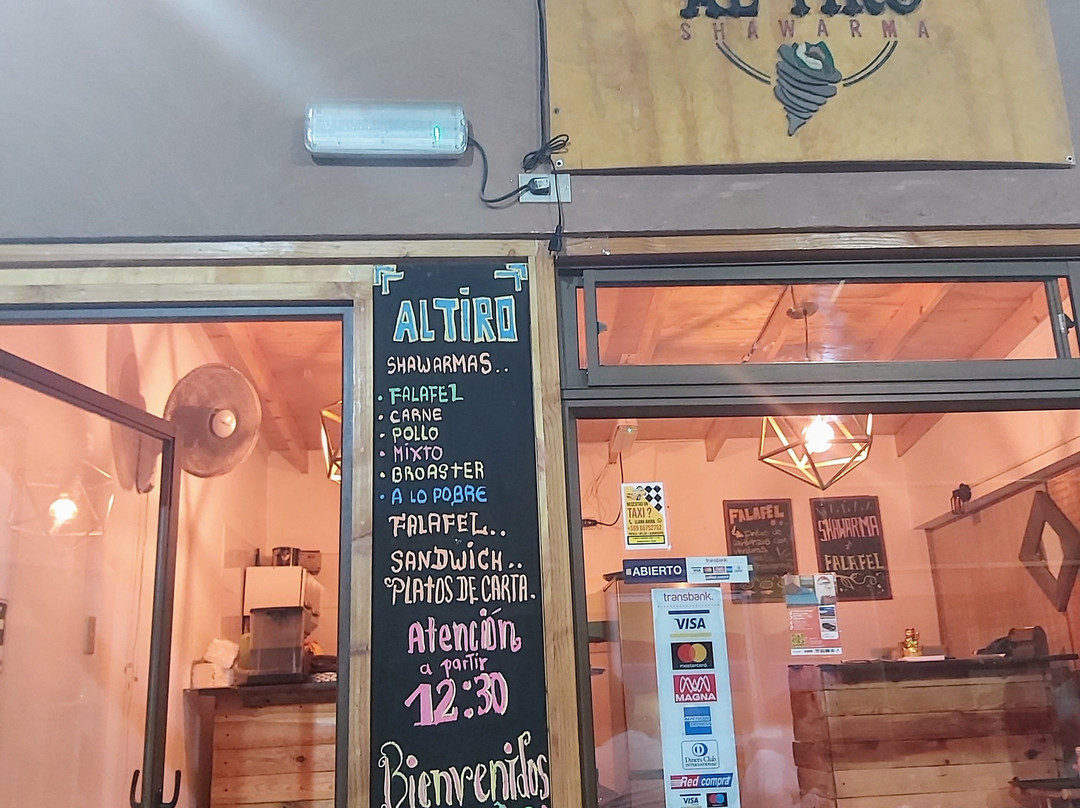 AL TIRO
SHAWARMA
ALTIRO
SHAWARMAS..
• FALAFEL
• CARNE
• POLLO
• MIXTO
• BROASTER
• A LO POBRE
FALAFEL..
SANDWICH..
PLATOS DE CARTA.
Atención
a partir
12:30
Bienvenidos
TAXI?
ABIERTO
transbank.
VISA
mastercard
MAGNA
Diners Club
INTERNATIONAL
Red compra
VISA
FALAFEL
SHAWARMA
FALAFEL